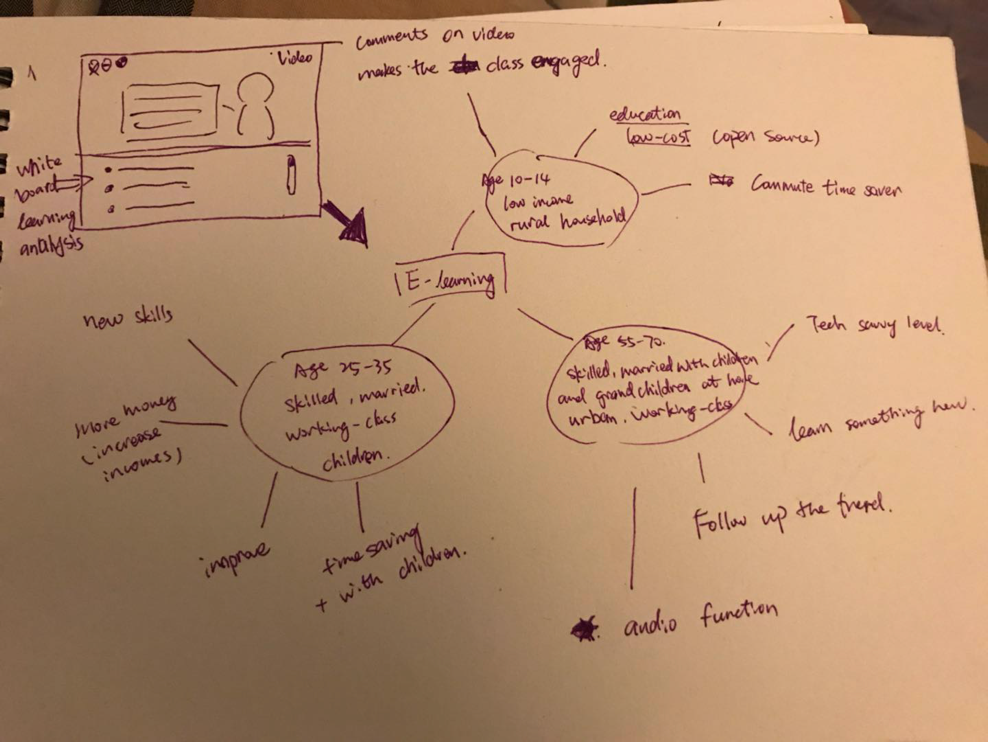 Video
white
board
learning
analysis
comments on video
makes the class engaged.
education
low-cost (open source)
Commute time saver
Age 10-14
low income
rural household
E-learning
new skills
More money
(increase
incomes)
improve
time saving
+ with children.
Age 25-35
skilled, married.
working-class
children.
Age 55-70.
skilled, married with children
and grandchildren at home
urban, working-class
Tech savvy level.
learn something new.
Follow up the trend.
audio function